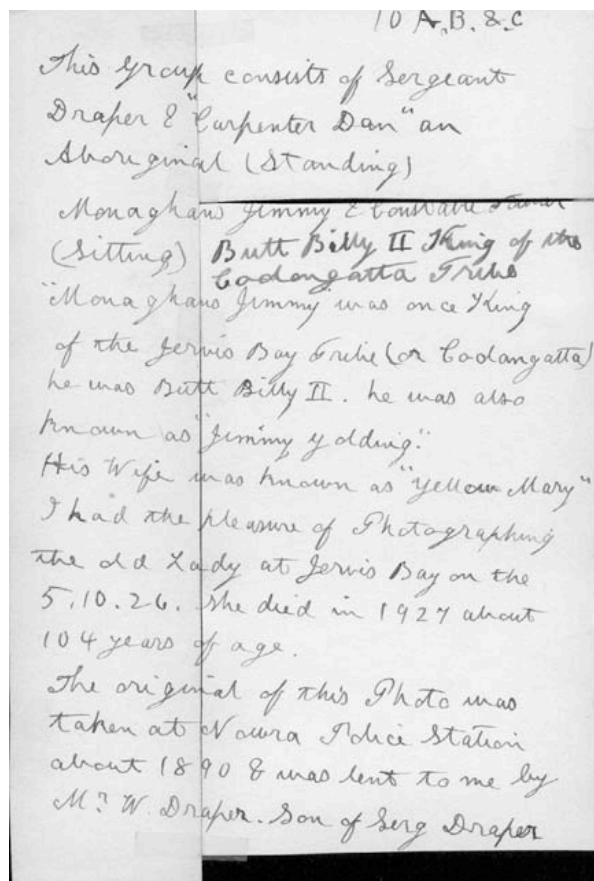 10 A.B. & C
This Group consists of Sergeant
Draper & "Carpenter Dan" an
Aboriginal (Standing)
Monaghans Jimmy & Constable
(Sitting) Butt Billy II King of the
Codangatta Tribe
"Monaghans Jimmy was once King
of the Jervis Bay Tribe (or Codangatta)
he was Butt Billy II. he was also
known as "Jimmy Golding."
His Wife was known as "Yellow Mary"
I had the pleasure of Photographing
the old Lady at Jervis Bay on the
5.10.26. She died in 1927 about
104 years of age.
The original of this Photo was
taken at Nowra Police Station
about 1890 & was lent to me by
Mr W. Draper. Son of Serg Draper